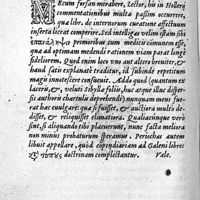 Ecum forsan mirabere, Lector, hîc in Hollerij
commentationibus multa passim occurrere,
quæ libr. de internorum curatione affectuum
inserta liceat comperire. Sed intelligas velim istam sibi
primoribus cum medicis communem esse,
qua ad optandam medendi rationem viam parat longè
fideliorem. Quod enim loco vno aut altero breuiter, &
haud satis explanatè traditur, id subinde repetitum
magis innotescere consueuit. Adde quòd (quantum ex
laceris, &, veluti Sibyllæ folijs, huc atque illuc disper-
sis auctoris chartulis deprehendi) nunquam mens fue-
rat hæc euulgare: quæ si fuisset, & auctiora multò de-
disset, & reliquisset elimatiora. Qualiacunque verò
sint, si aliquando tibi placuerunt, nunc facta meliora
non minùs probatum iri speramus. Periochas autem
libuit appellare, quòd compendiariam ad Galeni libros
τόπους doctrinam complectantur. Vale.